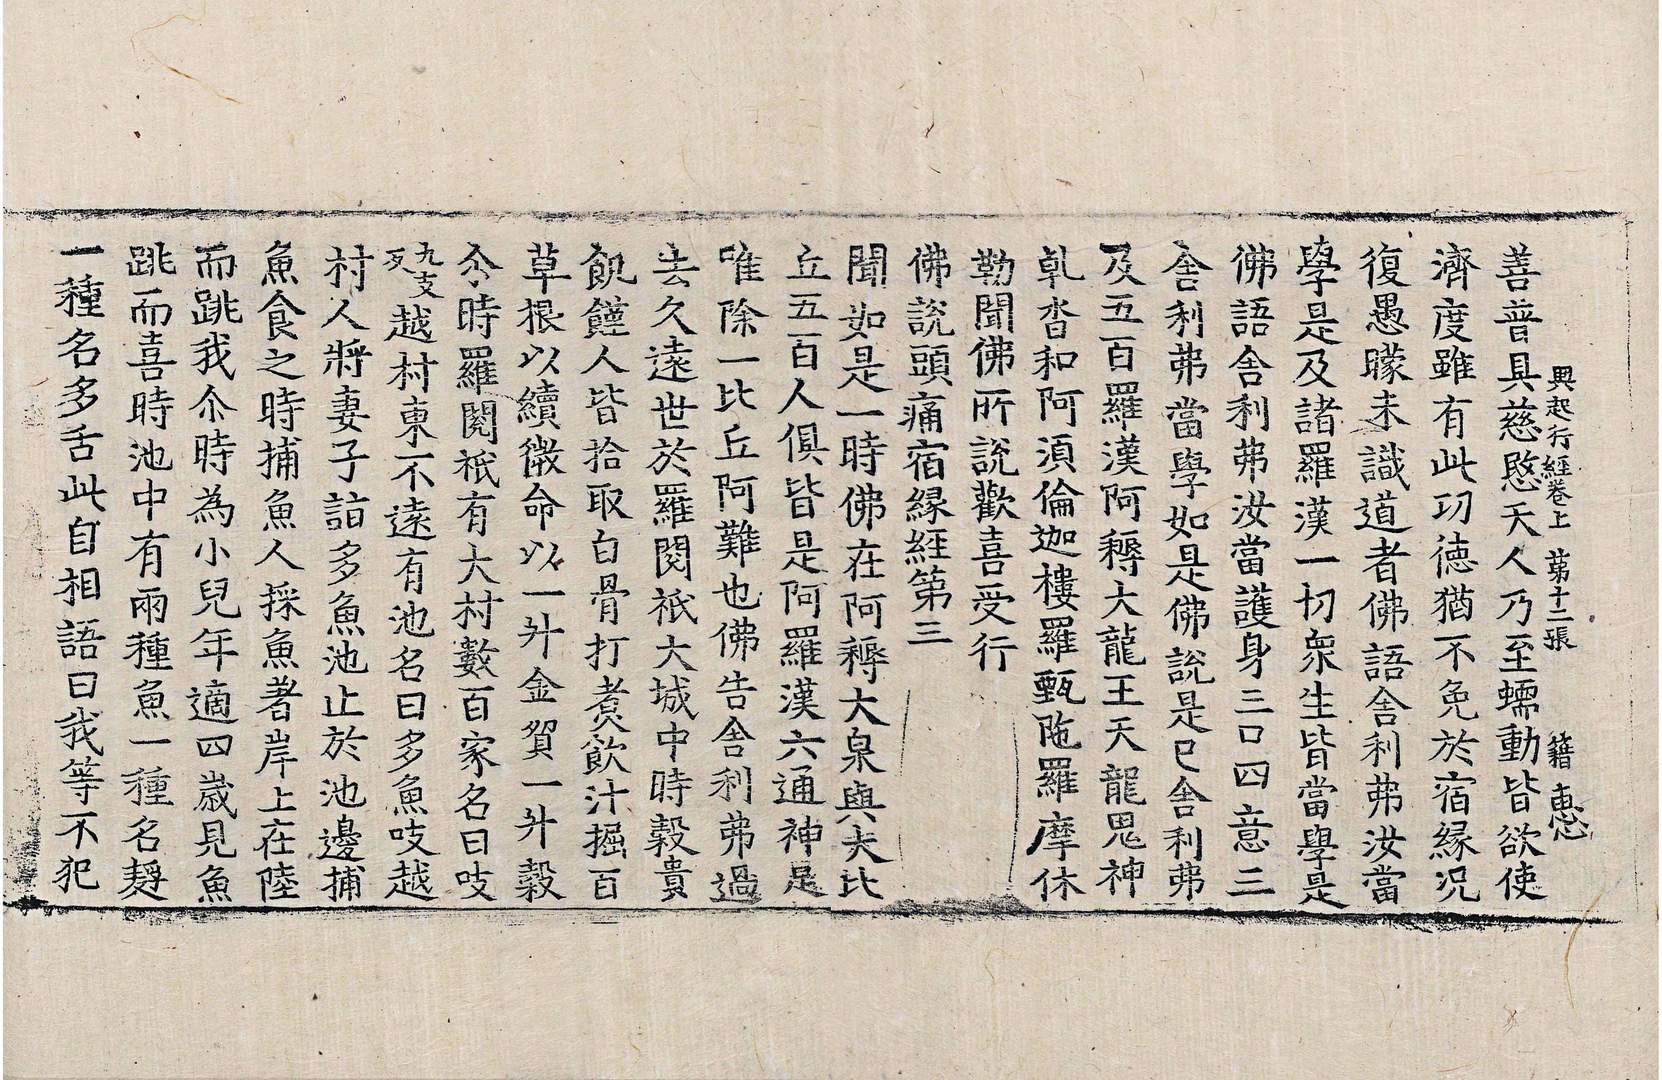 興起行經卷上 第十二張 籍 惠
善普具慈愍天人乃至蠕動皆欲使
濟度雖有此功德猶不免於宿緣況
復愚曚未識道者佛語舍利弗汝當
學是及諸羅漢一切衆生皆當學是
佛語舍利弗汝當護身三口四意三
舍利弗當學如是佛說是已舍利弗
及五百羅漢阿耨大龍王天龍鬼神
乹沓和阿須倫迦樓羅甄陁羅摩休
勒聞佛所說歡喜受行
佛說頭痛宿緣經第三
聞如是一時佛在阿耨大泉與大比
丘五百人俱皆是阿羅漢六通神足
唯除一比丘阿難也佛告舍利弗過
去久遠世於羅閱祇大城中時穀貴
飢饉人皆拾取白骨打煮飲汁掘百
草根以續微命以一升金貿一升穀
尒時羅閱祇有大村數百家名曰吱
九支反越村東不遠有池名曰多魚吱越
村人將妻子詣多魚池止於池邊捕
魚食之時捕魚人採魚著岸上在陸
而跳我尒時為小兒年適四歲見魚
跳而喜時池中有兩種魚一種名𪌘
一種名多舌此自相語曰我等不犯